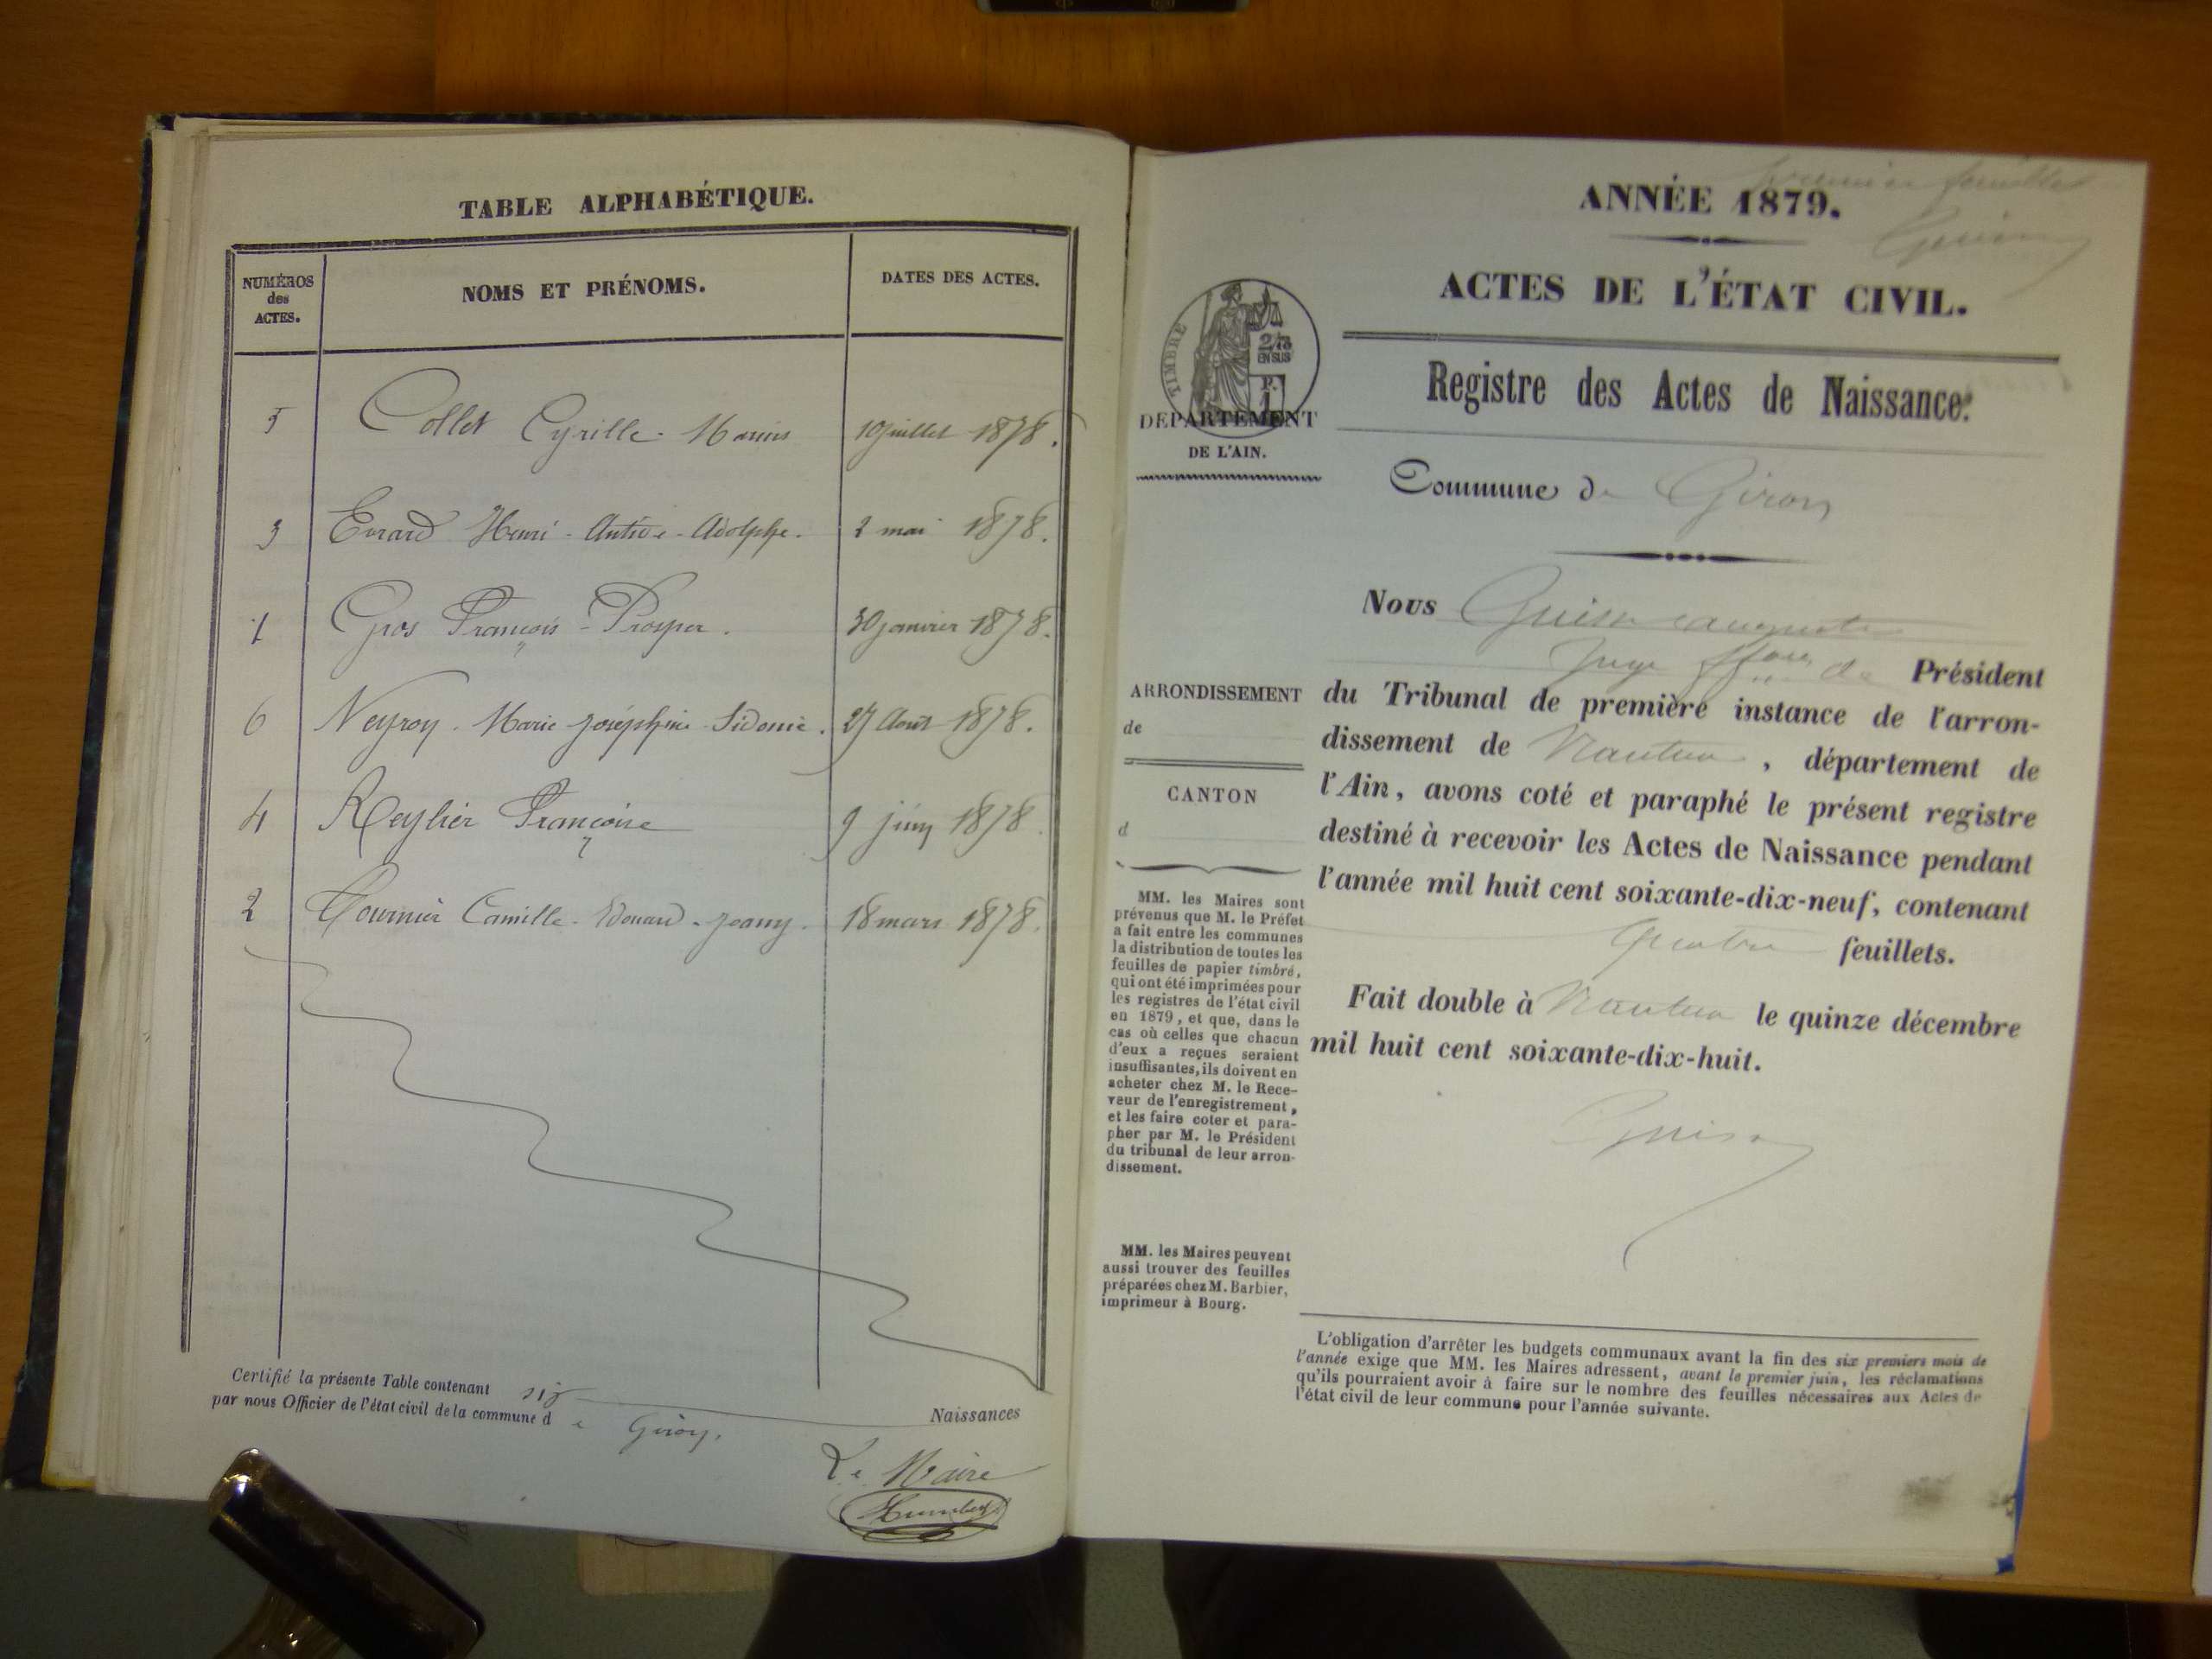 TABLE ALPHABÉTIQUE.
NUMÉROS
des
ACTES.
NOMS ET PRÉNOMS.
DATES DES ACTES.
5 Collet Cyrille Marius 10 juillet 1878.
3 Evrard Henri - Antide - Adolphe. 2 mai 1878.
1 Gros François - Prosper. 30 janvier 1878.
6 Neyroy. Marie Joséphine Sidonie. 27 Août 1878.
4 Reylier Françoise 9 juin 1878
2 Tournier Camille - Edouard - Joany. 18 mars 1878.
Certifié la présente Table contenant six Naissances
par nous Officier de l'état civil de la commune d e Giron.
Le Maire
Humbert
premier feuillet
ANNÉE 1879.
ACTES DE L'ÉTAT CIVIL.
TIMBRE
2/10
EN SUS
DÉPARTEMENT
DE L'AIN.
Registre des Actes de Naissance.
Commune de Giron
Nous
Juge
de Président
ARRONDISSEMENT
de
CANTON
d
du Tribunal de première instance de l'arron-
dissement de Nantua, département de
l'Ain, avons coté et paraphé le présent registre
destiné à recevoir les Actes de Naissance pendant
l'année mil huit cent soixante-dix-neuf, contenant
quatre feuillets.
Fait double à Nantua le quinze décembre
mil huit cent soixante-dix-huit.
MM. les Maires sont
prévenus que M. le Préfet
a fait entre les communes
la distribution de toutes les
feuilles de papier timbré,
qui ont été imprimées pour
les registres de l'état civil
en 1879, et que, dans le
cas où celles que chacun
d'eux a reçues seraient
insuffisantes, ils doivent en
acheter chez M. le Rece-
veur de l'enregistrement,
et les faire coter et para-
pher par M. le Président
du tribunal de leur arron-
dissement.
MM. les Maires peuvent
aussi trouver des feuilles
préparées chez M. Barbier,
imprimeur à Bourg.
L'obligation d'arrêter les budgets communaux avant la fin des six premiers mois de
l'année exige que MM. les Maires adressent, avant le premier juin, les réclamations
qu'ils pourraient avoir à faire sur le nombre des feuilles nécessaires aux Actes de
l'état civil de leur commune pour l'année suivante.